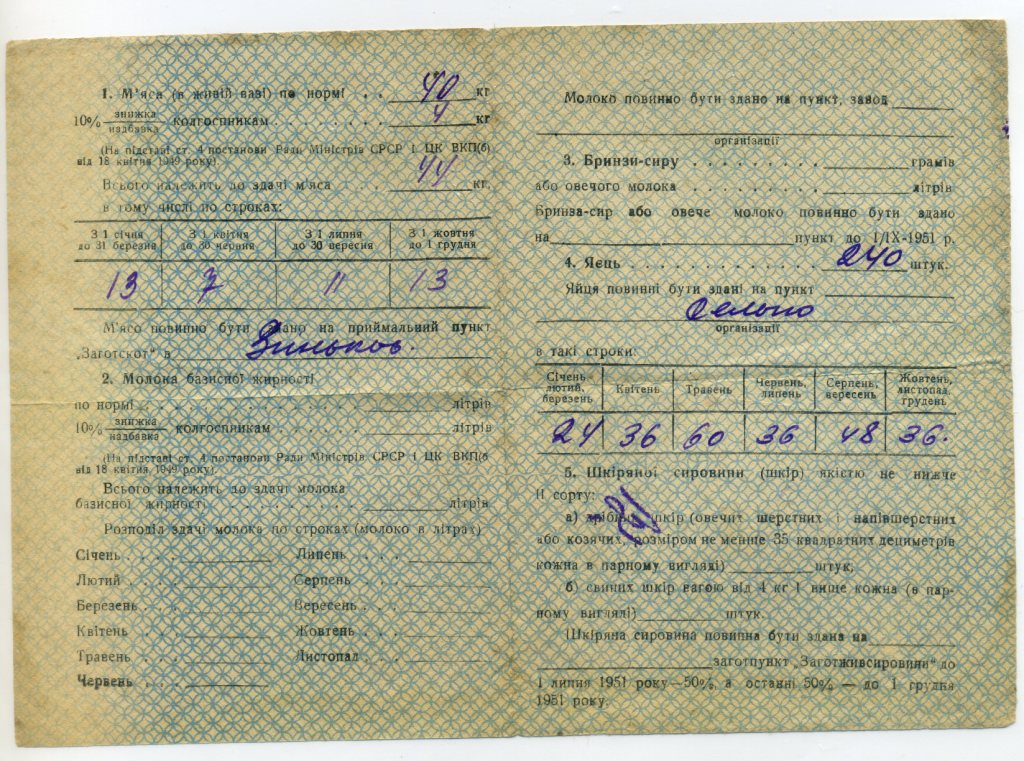 1. М'яса (в живій вазі) по нормі . . 40 кг
10% знижка/надбавка колгоспникам . . . . . . . . 4 кг
(На підставі ст. 4 постанови Ради Міністрів СРСР і ЦК ВКП(б)
від 18 квітня 1949 року).
Всього належить до здачі м'яса . . . 44 кг.
в тому числі по строках:
З 1 січня до 31 березня | З 1 квітня до 30 червня | З 1 липня до 30 вересня | З 1 жовтня до 1 грудня
13 | 7 | 11 | 13
М'ясо повинно бути здано на приймальний пункт
„Заготскот" в Зиньков.
2. Молока базисної жирності
по нормі . . . . . . . . . . . літрів
10% знижка/надбавка колгоспникам . . . . . . . літрів
(На підставі ст. 4 постанови Ради Міністрів СРСР і ЦК ВКП(б
від 18 квітня 1949 року).
Всього належить до здачі молока
базисної жирності . . . . . . . . . літрів
Розподіл здачі молока по строках (молоко в літрах)
Січень . . . . Липень . . . .
Лютий . . . . Серпень . . . .
Березень . . . Вересень . . .
Квітень . . . Жовтень . . .
Травень . . . Листопад . . .
Червень . . .
Молоко повинно бути здано на пункт, завод
організації
3. Бринзи-сиру . . . . . . . . . грамів
або овечого молока . . . . . . . . . літрів
Бринза-сир або овече молоко повинно бути здано
на пункт до 1/IX-1951 р.
4. Яєць . . . . . . . . . . . . . 240 штук.
Яйця повинні бути здані на пункт
Сельпо
організації
в такі строки:
Січень, лютий, березень | Квітень | Травень | Червень, липень | Серпень, вересень | Жовтень, листопад, грудень
24 | 36 | 60 | 36 | 48 | 36.
5. Шкіряної сировини (шкір) якістю не нижче
II сорту:
а) дрібних шкір (овечих шерстних і напівшерстних
або козячих, розміром не менше 35 квадратних дециметрів
кожна в парному вигляді) штук,
б) свиних шкір вагою від 4 кг і вище кожна (в пар-
ному вигляді) штук.
Шкіряна сировина повинна бути здана на
заготпункт „Заготживсировини" до
1 липня 1951 року—50%, а останні 50% — до 1 грудня
1951 року.